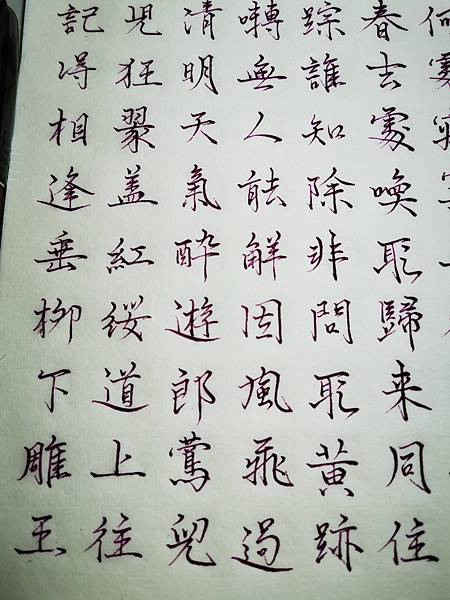 何
春去處喚取歸来同住
踪誰知除非問取黄跡
囀無人能解因風飛過
清明天氣醉遊郎鶯兒
児狂翠盖紅綏道上往
記得相逢垂柳下雕玉